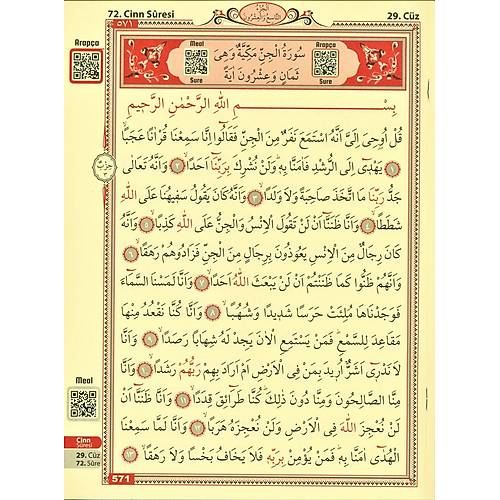 72. Cinn Sûresi
29. Cüz
٥٧١
Arapça
Meal
Sure
Arapça
Sure
سُورَةُ الْجِنِّ مَكِّيَّةٌ وَهِيَ
ثَمَانٍ وَعِشْرُونَ اٰيَةً
بِسْمِ اللّٰهِ الرَّحْمٰنِ الرَّحٖيمِ
قُلْ اُو۫حِيَ اِلَيَّ اَنَّهُ اسْتَمَعَ نَفَرٌ مِنَ الْجِنِّ فَقَالُٓوا اِنَّا سَمِعْنَا قُرْاٰنًا عَجَبًا
﴿١﴾ يَهْدٖٓي اِلَى الرُّشْدِ فَاٰمَنَّا بِهٖ وَلَنْ نُشْرِكَ بِرَبِّنَٓا اَحَدًا ﴿٢﴾ وَاَنَّهُ تَعَالٰى
جَدُّ رَبِّنَا مَا اتَّخَذَ صَاحِبَةً وَلَا وَلَدًا ﴿٣﴾ وَاَنَّهُ كَانَ يَقُولُ سَفٖيهُنَا عَلَى اللّٰهِ
شَطَطًا ﴿٤﴾ وَاَنَّا ظَنَنَّٓا اَنْ لَنْ تَقُولَ الْاِنْسُ وَالْجِنُّ عَلَى اللّٰهِ كَذِبًا ﴿٥﴾ وَاَنَّهُ
كَانَ رِجَالٌ مِنَ الْاِنْسِ يَعُوذُونَ بِرِجَالٍ مِنَ الْجِنِّ فَزَادُوهُمْ رَهَقًا ﴿٦﴾
وَاَنَّهُمْ ظَنُّوا كَمَا ظَنَنْتُمْ اَنْ لَنْ يَبْعَثَ اللّٰهُ اَحَدًا ﴿٧﴾ وَاَنَّا لَمَسْنَا السَّمَٓاءَ
فَوَجَدْنَاهَا مُلِئَتْ حَرَسًا شَدٖيدًا وَشُهُبًا ﴿٨﴾ وَاَنَّا كُنَّا نَقْعُدُ مِنْهَا
مَقَاعِدَ لِلسَّمْعِ فَمَنْ يَسْتَمِعِ الْاٰنَ يَجِدْ لَهُ شِهَابًا رَصَدًا ﴿٩﴾ وَاَنَّا
لَا نَدْرٖٓي اَشَرٌّ اُرٖيدَ بِمَنْ فِي الْاَرْضِ اَمْ اَرَادَ بِهِمْ رَبُّهُمْ رَشَدًا ﴿١٠﴾ وَاَنَّا
مِنَّا الصَّالِحُونَ وَمِنَّا دُونَ ذٰلِكَ كُنَّا طَرَٓائِقَ قِدَدًا ﴿١١﴾ وَاَنَّا ظَنَنَّٓا اَنْ
لَنْ نُعْجِزَ اللّٰهَ فِي الْاَرْضِ وَلَنْ نُعْجِزَهُ هَرَبًا ﴿١٢﴾ وَاَنَّا لَمَّا سَمِعْنَا
الْهُدٰٓى اٰمَنَّا بِهٖ فَمَنْ يُؤْمِنْ بِرَبِّهٖ فَلَا يَخَافُ بَخْسًا وَلَا رَهَقًا ﴿١٣﴾
Meal
Cinn
Sûresi
29. Cüz
72. Sûre
571